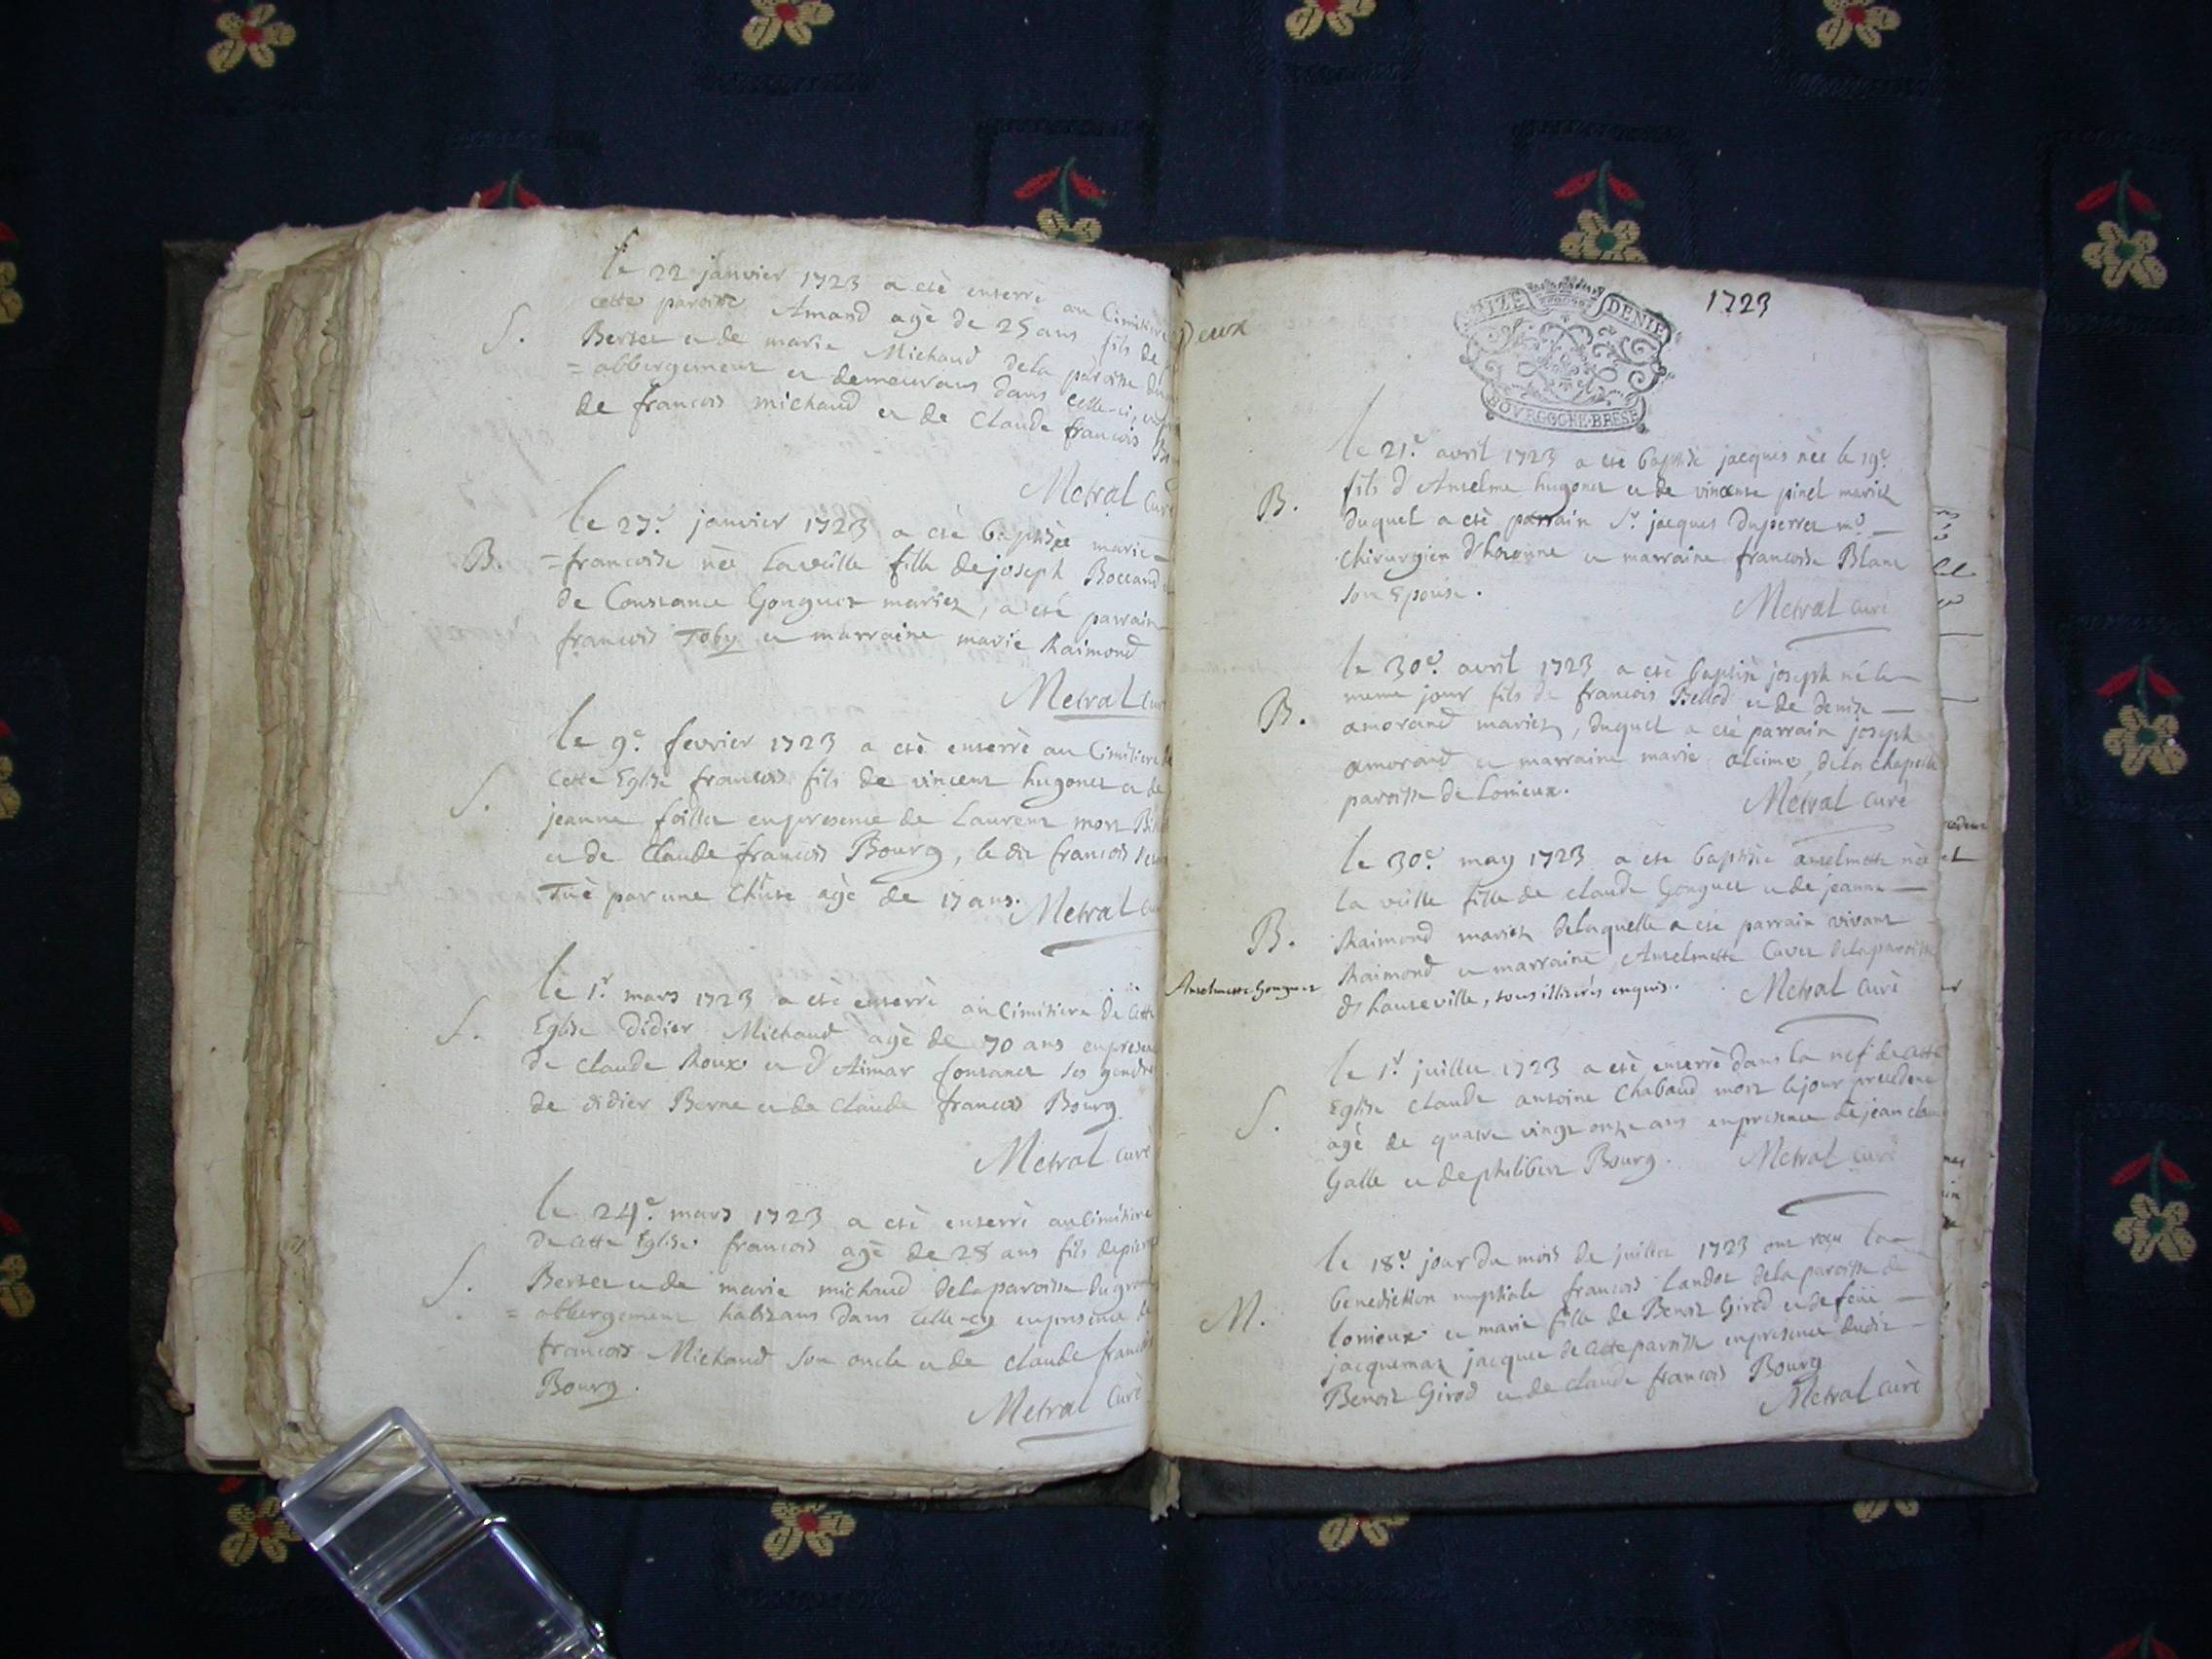 le 22 janvier 1723 a eté enterré au Cimitiere
S.
cette paroisse Amand agé de 25 ans fils de
Bertet et de marie Michaud dela paroisse du
= abbergement et demeurant dans celle-ci,
de francois michaud et de Claude francois
Metral Curé
le 27e. janvier 1723 a eté baptisée marie=
B.
=francoise née laveille fille de joseph Boccand
de Constance Gonguet mariez, a eté parrain
francois Toby et marraine marie Raimond
Metral Curé
le 9e. fevrier 1723 a eté enterré au Cimitiere
S.
cette Eglise francois fils de vincent hugonet et de
jeanne foillet enpresence de Laurent
et de Claude francois Bourg, le dit francois
Tué par une Chute agé de 17 ans. Metral
le 1r. mars 1723 a eté enterré au Cimitiere de cette
S.
Eglise Didier Michaud agé de 70 ans enpresence
de Claude Roux et d'Aimar Constance ses gendres
de didier Berne et de Claude francois Bourg.
Metral curé
le 24e. mars 1723 a eté enterré au Cimitiere
de cette Eglise francois agé de 28 ans fils de pierre
S.
Bertet et de marie michaud dela paroisse du grand
= abbergement habitans dans celle-cy enpresence de
francois Michaud son oncle et de claude francois
Bourg.
Metral Curé
Deux
SEIZE DENIE
BOVRGOGNE·BRESE
1723
le 21e. avril 1723 a eté baptisé jacques née le 19e.
B.
fils d'Anselme hugonet et de vincense pinet mariez
duquel a eté parrain Sr. jacques Duperret me
chirurgien d'hotonne et marraine francoise Blanc
son Epouse.
Metral curé
le 30e. avril 1723 a eté baptisé joseph né le
meme jour fils de francois Bellod et de denise
B.
amorand mariez, duquel a eté parrain joseph
amorand et marraine marie aleime, dela chapelle
paroisse de Lonieux.
Metral curé
le 30e. may 1723 a eté baptisée anselmette née
la veille fille de claude Gonguet et de jeanne
B.
Raimond mariez delaquelle a eté parrain vivant
Anselmette Gonguet
Raimond et marraine Anselmette Cavet dela paroisse
d'hauteville, tous illiterés enquis. Metral Curé
le 1r. juillet 1723 a eté enterré dans la nef de cette
S.
Eglise claude antoine Chabaud mort le jour precedent
agé de quatre vingt onze ans enpresence de jean claude
Galle et de philibert Bourg. Metral curé
le 18e. jour du mois de juillet 1723 ont reçu la
benediction nuptiale francois Landoz dela paroisse de
M.
lonieux et marie fille de Benoit Girod et de feüe
jacquemaz jacquet de cette paroisse enpresence dudit
Benoit Girod et de claude francois Bourg
Metral curé